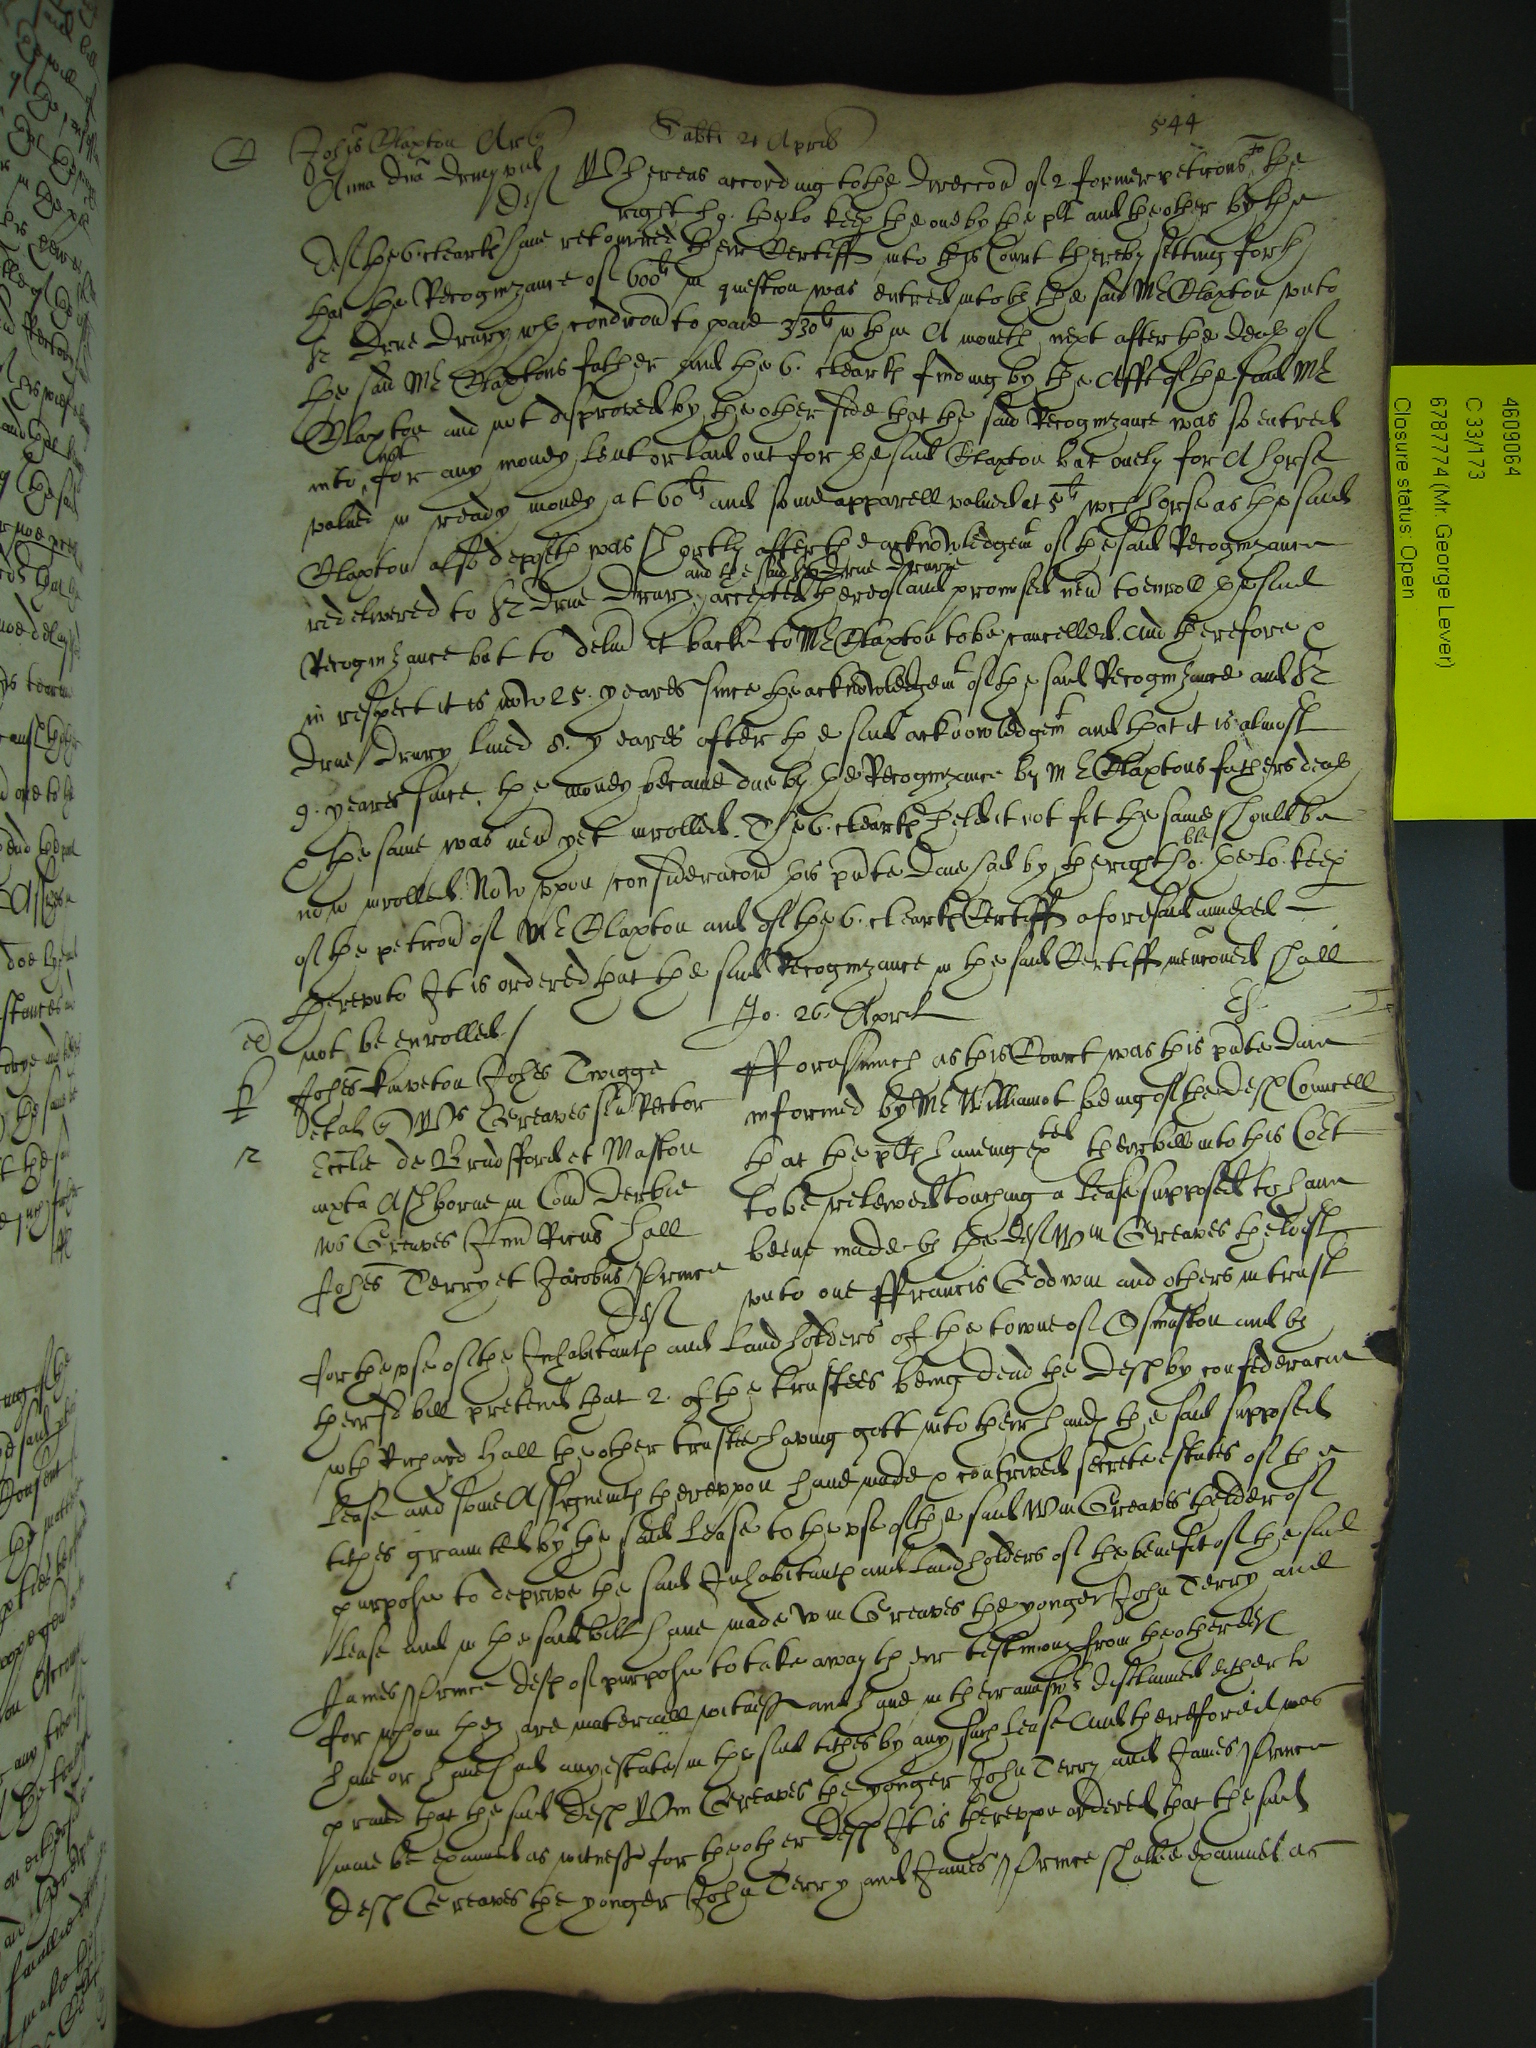 544
Sabti 21 Aprilis
Johis Claxton Ar
Anna Dna Drury vid
Def
Whereas according to the direccon of 2 former peticons to the
right ho: the lo keep the one by the plt and the other by the
Def the 6 clearks have retourned their Certiff into this Court thereby setting forth
that the Recognizance of 600li in question was entred into by the said Mr Claxton unto
Sr Drue Drury wth condicon to paie 330li wthin A moneth next after the death of
the said Mr Claxtons father and the 6. clearks finding by the Afft of the said Mr
Claxton and not disproved by the other side that the said Recognizance was so entred
into not for any money lent or laid out for the said Claxton but onely for A horse
valued in ready money at 60li and some apparell valued at 5li wch horse as the said
Claxton also deposeth was shortly after the acknowledgemt of the said Recognizance
redelivered to Sr Drue Drury and the said Sr Drue Drurie accepted thereof and promised nev to enroll the said
Recognizance but to deliv it backe to Mr Claxton to be cancelled. And therefore
in respect it is now 25. yeares since the acknowledgemt of the said Recognizance and Sr
Drue Drury lived 8. yeares after the said acknowledgemt and that it is almost
9. yeares since the money became due by the Recognizance by Mr Claxtons fathers death
the same was nev yet inrolled. The 6. clearks held it not fit the same should be
now inrolled. Now upon consideracon this pnte daie had by the right hoble the lo. keep
of the peticon of Mr Claxton and of the 6. clearks Certiff aforesaid annexed
hereunto It is ordered that the said Recognizance in the said Certiff menconed shall
not be enrolled
Jo. 26. April
Johes Kniveton Johes Twigge
et al Ws Greaves sen Rector
Ecclie de Bradfford et Maston
iuxta Ashborne in Com Derbie
Ws Greaves Jun Ricus Hall
Johes Terry et Jacobus Prince
Def
Fforasmuch as this Court was this pnte daie
informed by Mr Williamot being of the Defts Councell
that the plts having exted their bill into this Cort
to be releived touching a lease supposed to have
beene made by the Def Wm Greaves the eldest
unto one Ffrancis Godwin and others in trust
for the use of the Inhabitants and Landholders of the towne of Osmaston and by
their sd bill pretend that 2. of the trustees being dead the Defts by confederacie
wth Richard Hall the other trustee having gott into their hands the said supposed
lease and some Assignemts thereuppon have made contrived secrete estates of the
tithes graunted by the said Lease to the use of the said Wm Greaves the elder of
purpose to deprive the said Inhabitants and Landholders of the benefit of the said
Lease and in the said bill have made Wm Greaves the yonger John Terry and
James Prince Defts of purpose to take away their testimony from the other Def
for whom they are materiall witnesses and have in their answers disclaimed either to
have or have had any estate in the said tithes by any such lease And therefore it was
praied that the said Defts Wm Greaves the yonger John Terry and James Prince
maie be examined as witnesses for the other Defts It is thereuppon ordered that the said
Defts Greaves the yonger John Terry and James Prince shalbe examined as
4609064
C 33/173
6787774 (Mr. George Lever)
Closure status: Open